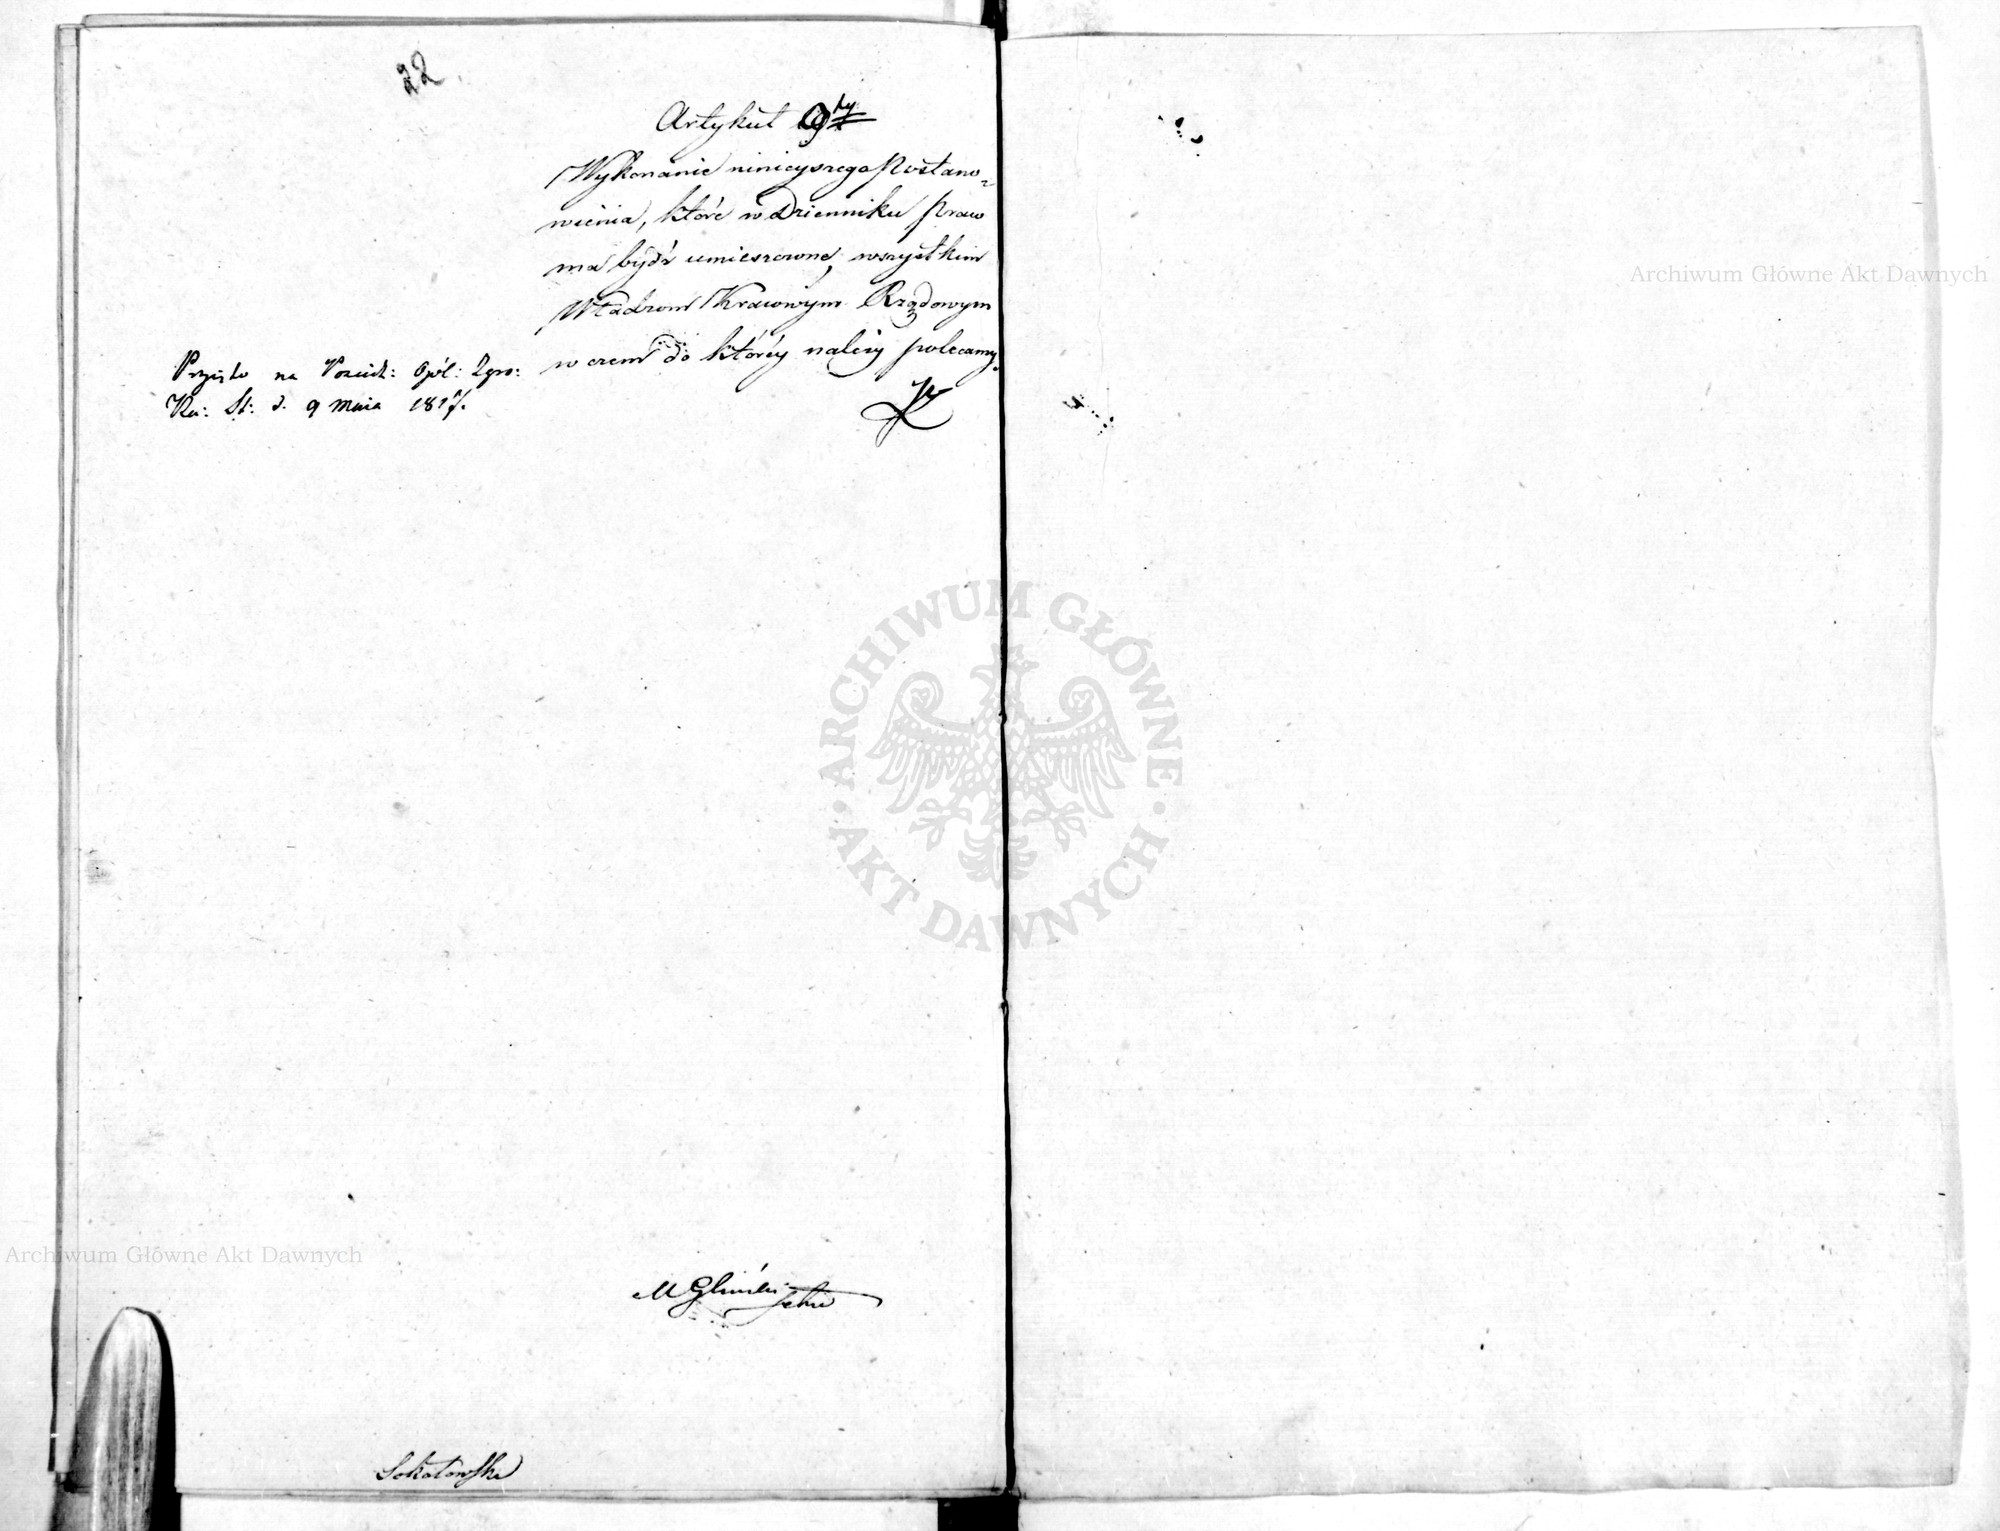 22
Artykuł 9ty
Wykonanie ninieyszego Postano-
wienia, które w Dzienniku praw
ma bydź umieszczone, wszystkim
Władzom Kraiowym Rządowym
w czem do któréy należy polecamy.
Przyięto na Posied: Ogól: Zgro:
Ra: St: d. 9 Maia 1817.
M Gliński
Sokołowski
ARCHIWUM GŁÓWNE
AKT DAWNYCH
Archiwum Główne Akt Dawnych
Archiwum Główne Akt Dawnych